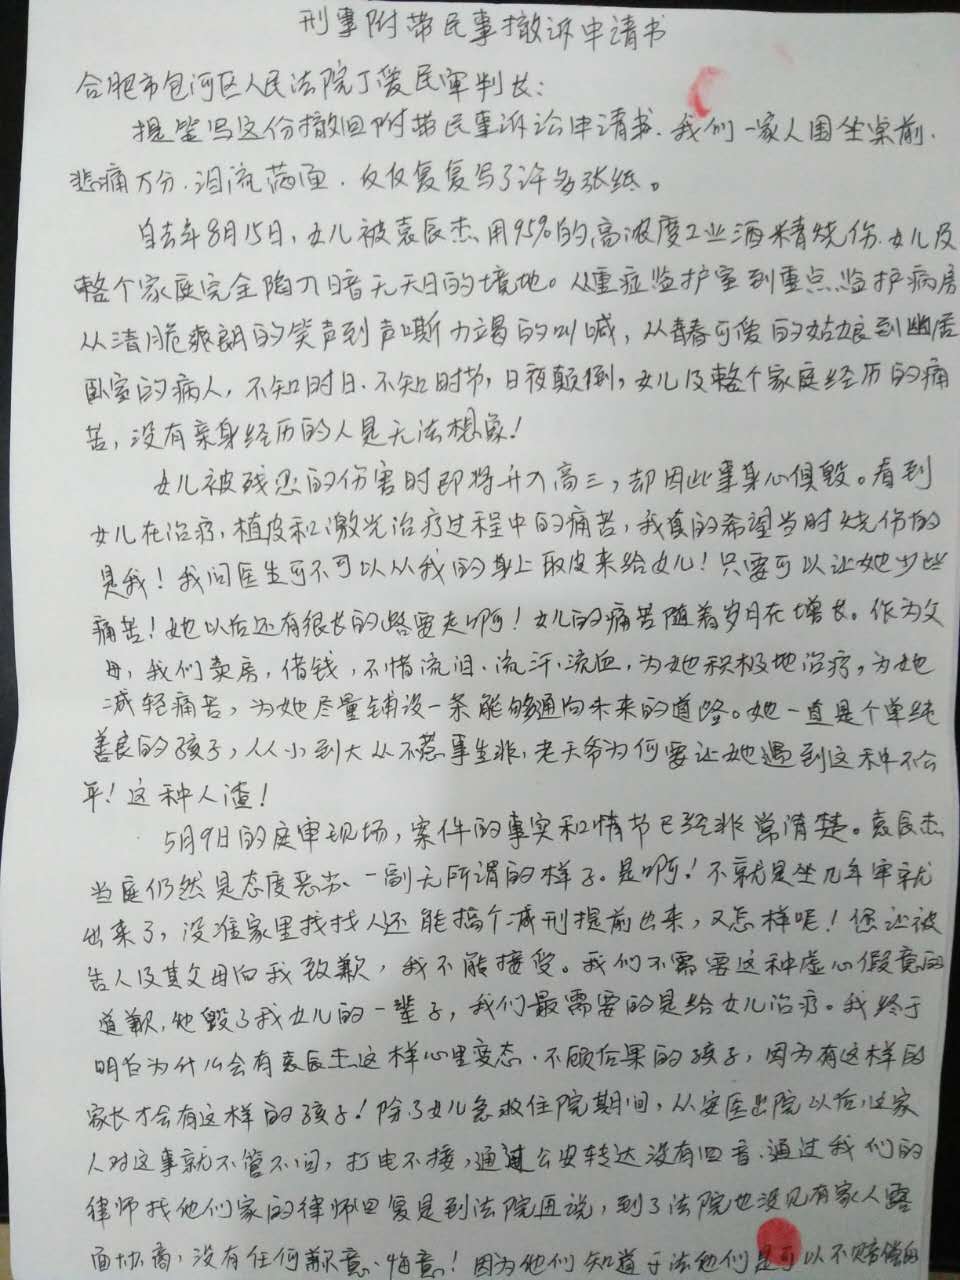 刑事附带民事撤诉申请书
合肥市包河区人民法院丁爱民审判长：
提笔写这份撤回附带民事诉讼申请书、我们一家人围坐桌前、
悲痛万分、泪流满面、反反复复写了许多张纸。
自去年8月15日，女儿被袁辰杰用95%的高浓度工业酒精烧伤、女儿及
整个家庭完全陷入暗无天日的境地。从重症监护室到重点监护病房
从清脆爽朗的笑声到声嘶力竭的叫喊，从青春可爱的姑娘到幽居
卧室的病人，不知时日、不知时节，日夜颠倒，女儿及整个家庭经历的痛
苦，没有亲身经历的人是无法想象！
女儿被残忍的伤害时即将升入高三，却因此事身心俱毁。看到
女儿在治疗，植皮和激光治疗过程中的痛苦，我真的希望当时烧伤的
是我！我问医生可不可以从我的身上取皮来给女儿！只要可以让她少些
痛苦！她以后还有很长的路要走啊！女儿的痛苦随着岁月在增长。作为父
母，我们卖房，借钱，不惜流泪、流汗、流血，为她积极地治疗，为她
减轻痛苦，为她尽量铺设一条能够通向未来的道路。她一直是个单纯
善良的孩子，从小到大从不惹事生非，老天爷为何要让她遇到这种不会
年！这种人渣！
5月9日的庭审现场，案件的事实和情节已经非常清楚。袁辰杰
当庭仍然是态度恶劣、一副无所谓的样子。是啊！不就是坐几年牢就
出来了，没准家里找找人还能搞个减刑提前出来，又怎样呢！您让被
告人及其父母向我致歉，我不能接受。我们不需要这种虚心假意的
道歉，他毁了我女儿的一辈子，我们最需要的是给女儿治疗。我终于
明白为什么会有袁辰杰这样心里变态、不顾后果的孩子，因为有这样的
家长才会有这样的孩子！除了女儿急救住院期间，从安医出院以后，这家
人对这事就不管不问，打电不接，通过公安转达没有回音、通过我们的
律师找他们家的律师回复是到法院再说，到了法院也没见有家人露
面协商，没有任何歉意、悔意！因为他们知道于法他们是可以不赔偿的